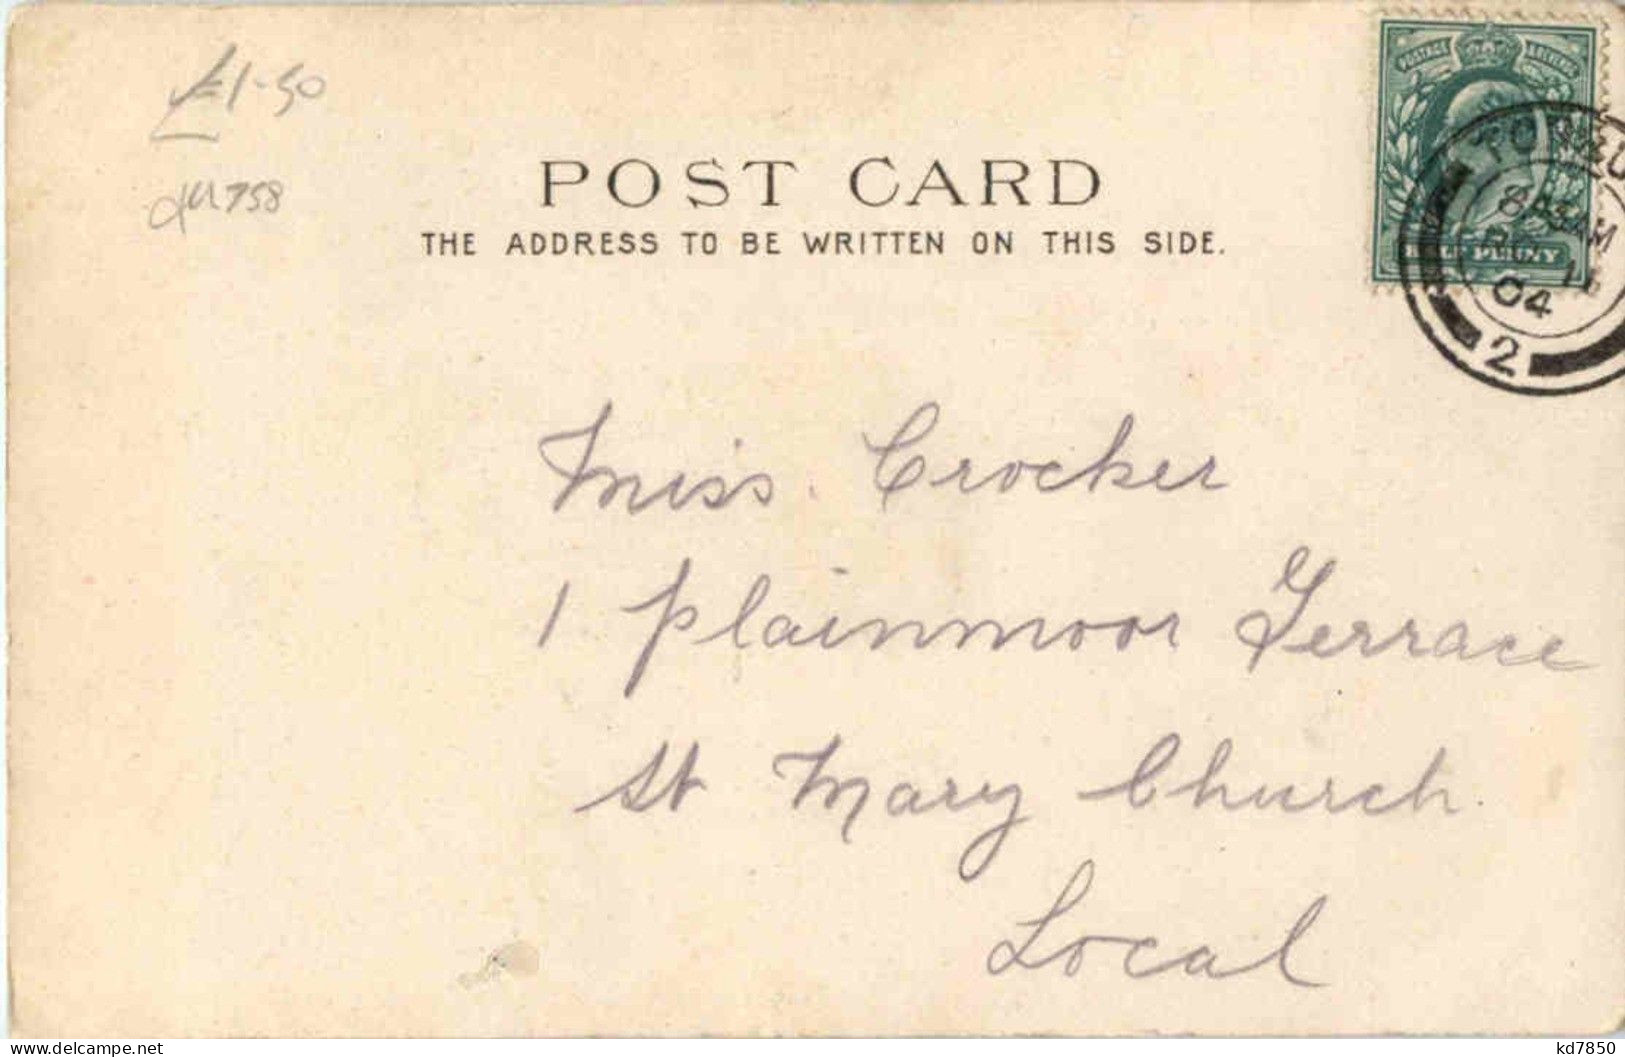 £1-50
POST CARD
THE ADDRESS TO BE WRITTEN ON THIS SIDE.
POSTAGE REVENUE
HALF PENNY
8 45AM
04
2
Miss. Crocker
1 Plainmoor Terrace
St Mary Church
Local
www.delcampe.net
kd7850